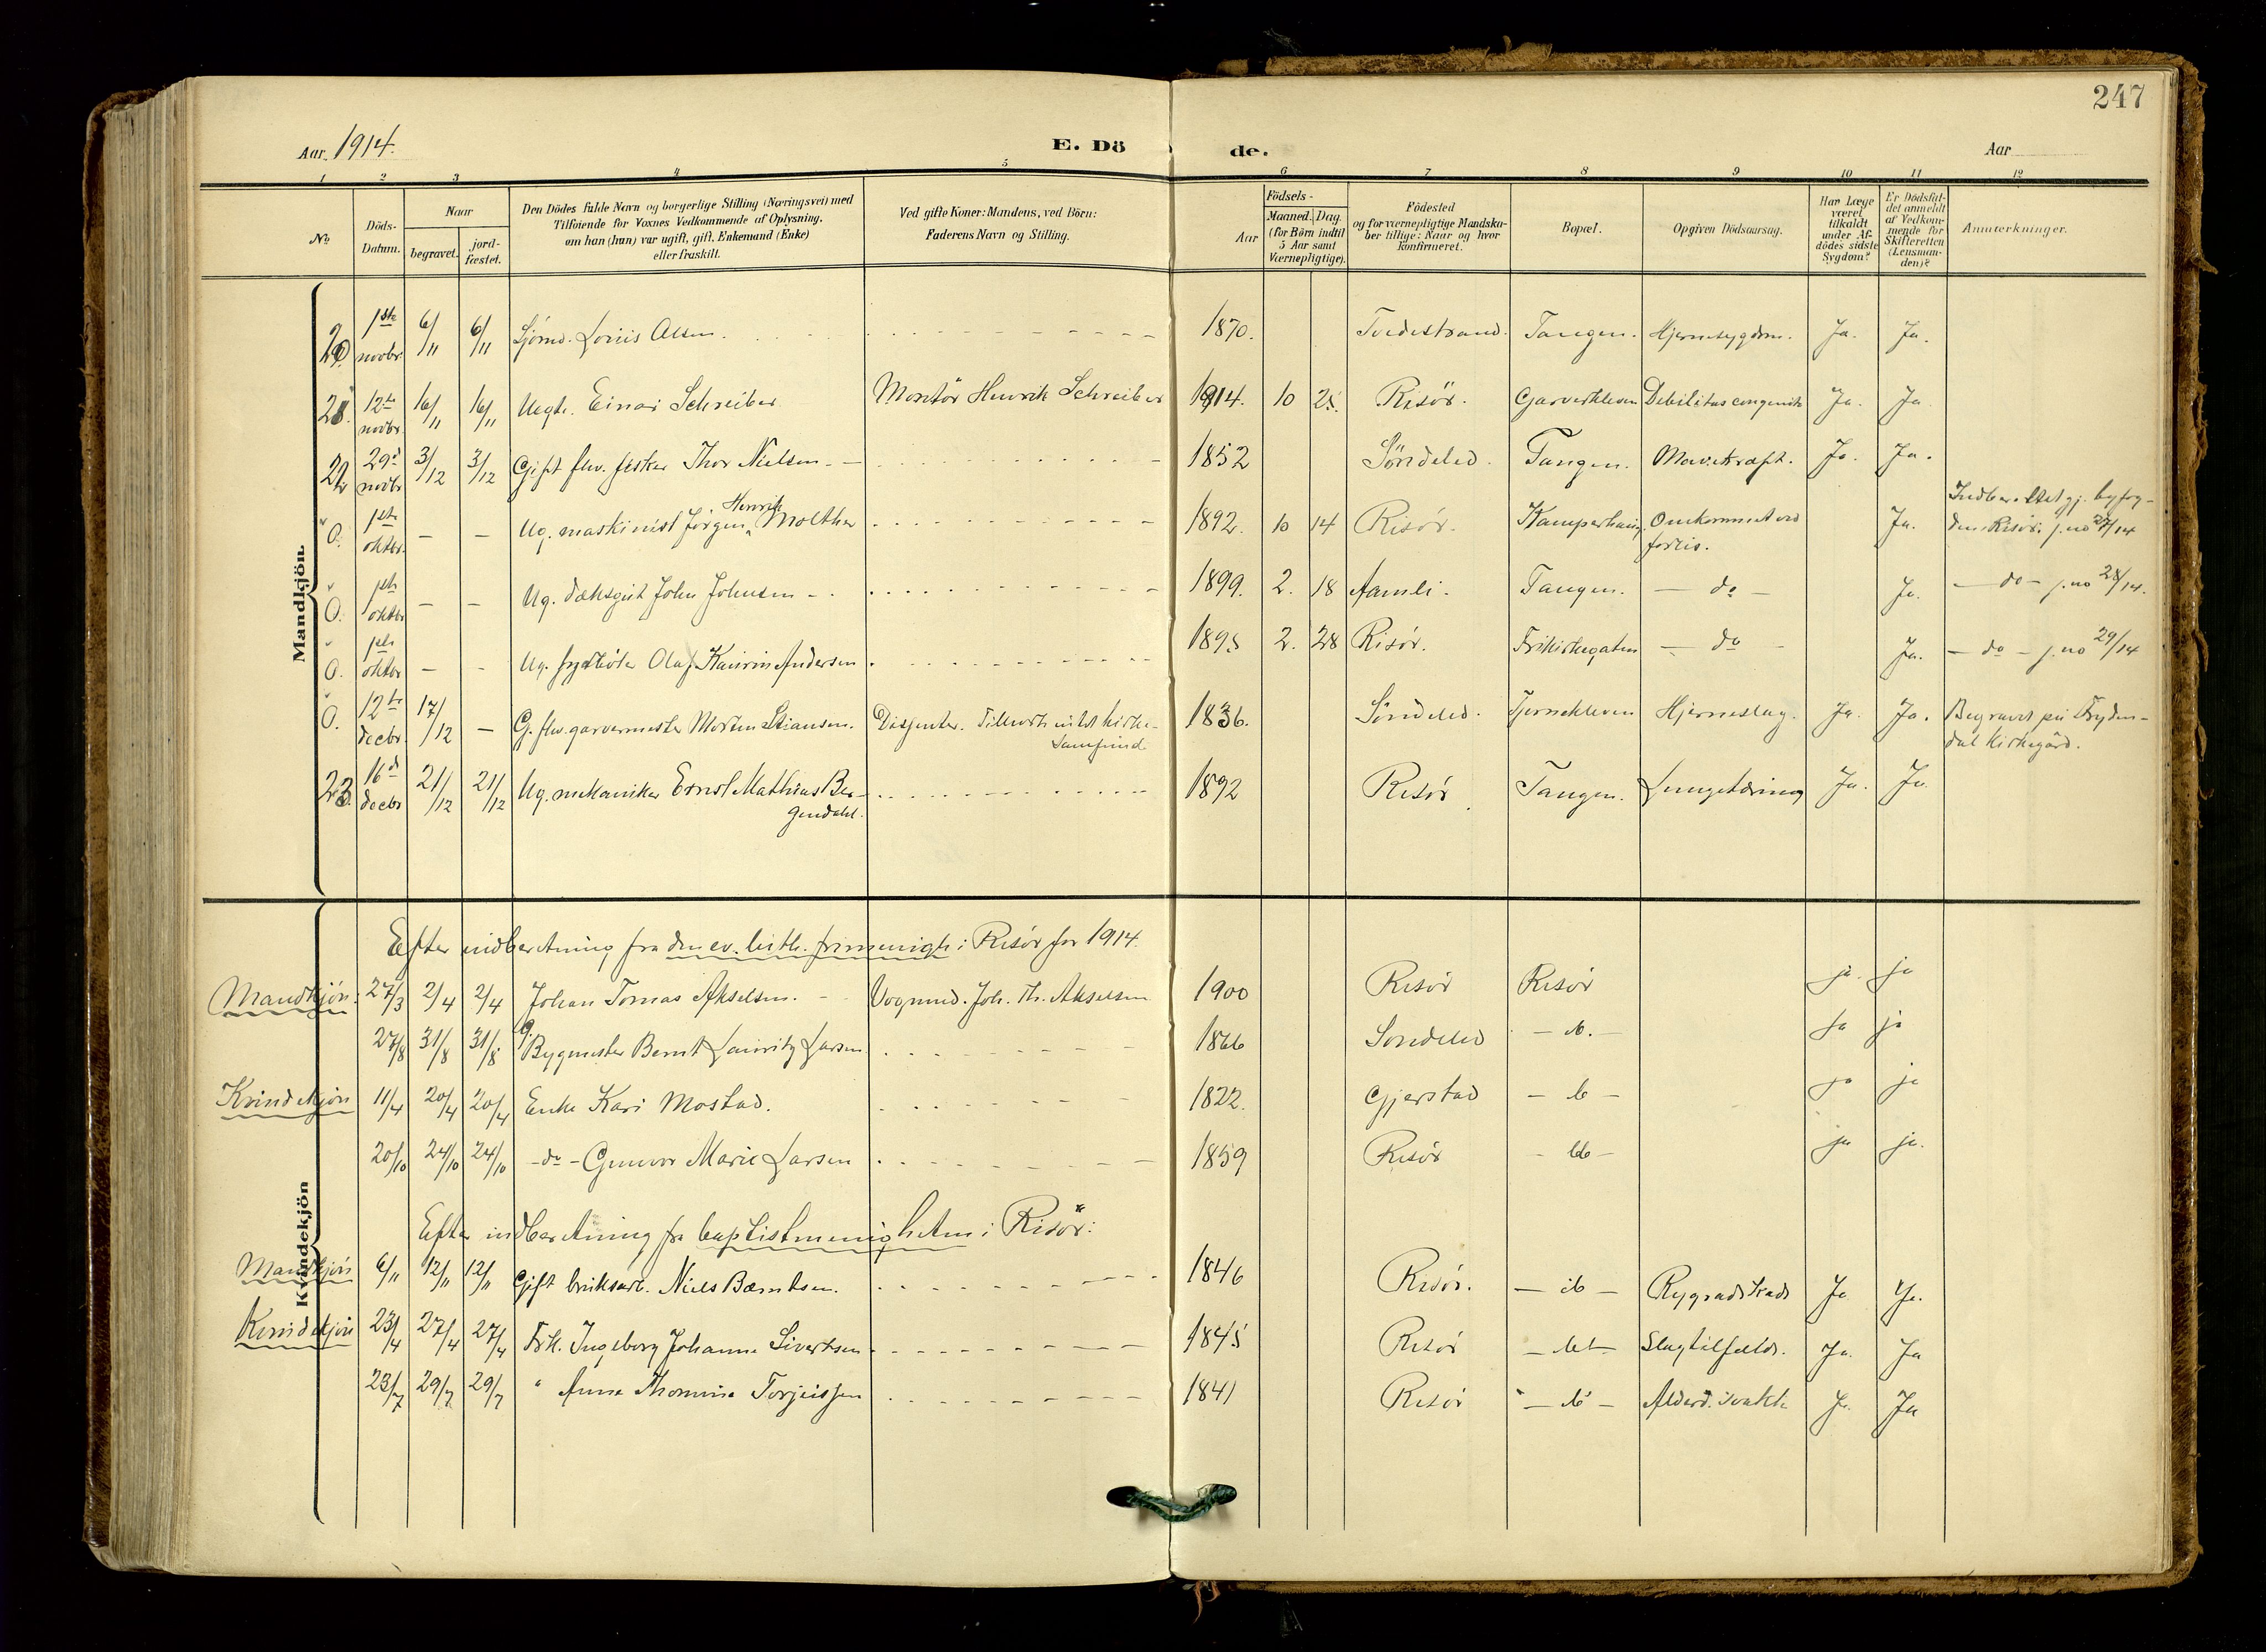 247
Aar 1914.
E. Dö de.
Aar
1 2 3 4 5 6 7 8 9 10 11 12
No
Döds-Datum.
Naar
begravet.
jord-fæstet.
Den Dödes fulde Navn og borgerlige Stilling (Næringsvei) med
Tilföiende for Voxnes Vedkommende af Oplysning,
om han (hun) var ugift, gift, Enkemand (Enke)
eller fraskilt.
Ved gifte Koner: Mandens, ved Börn:
Faderens Navn og Stilling.
Födsels-
Aar
Maaned. Dag.
(for Börn indtil
5 Aar samt
Værnepligtige).
Födested
og for værnepligtige Mandska-
ber tillige: Naar og hvor
konfirmeret.
Bopæl.
Opgiven Dödsaarsag.
Har Læge
været
tilkaldt
under Af-
dödes sidste
Sygdom?
Er Dödsfal-
det anmeldt
af Vedkom-
mende for
Skifteretten
(Lensman-
den)?
Anmærkninger.
Mandkjön.
20. 1ste novbr. 6/11 6/11 Sjömd. Louis Olsen. 1870. Tvedestrand. Tangen. Hjernesygdom. Ja. Ja.
21. 12te novbr. 16/11 16/11 Uegte. Einar Schreiber Montör Henrik Schreiber 1914. 10 25. Risör. Garverkleven Debilitas congenita Ja. Ja
22 29de novbr 3/12 3/12 Gift fhv. fisker Thor Nielsen 1852 Söndeled. Tangen. Mavekræft. Ja. Ja.
0. 1ste oktbr. - - Ug. maskinist Jörgen Henrik Molther 1892. 10 14 Risör. Kamperhaug. Omkommet ved Ja. Indberettet gj. byfog-
forlis. den i Risör. j.no 27/14
0. 1ste oktbr - - Ug. dæksgut John Johnsen 1899. 2. 18 Aamli. Tangen. - do - Ja. - do - j.no 28/14.
0. 1ste oktbr - - Ug. fyrbøter Olaf Kaurin Andersen 1895 2. 28 Risör. Frikirkegaten - do - Ja. - do - j.no 29/14
0. 12te decbr. 17/12 - G. fhv. garvermester Morten Stiansen. Dissenter. Tilhørte intet kirke- 1836. Söndeled. Tjernekleven Hjerneslag. Ja. Ja. Begravet på Fryden-
samfund dal kirkegård.
23 16de decbr 21/12 21/12 Ug. mekaniker Ernst Mathias Ber- 1892 Risör Tangen. Lungetæring Ja. Ja
gendahl.
Kvindekjön
Efter indberetning fra den ev. luth. frimenigh. i Risör for 1914.
Mandkjön: 27/3 2/4 2/4 Johan Tomas Akselsen. Vognmd. Joh. Th. Akselsen 1900 Risör Risör ja. ja
27/8 31/8 31/8 g. Bygmester Bernt Lauritz Larsen 1866 Söndeled - do. - Ja ja
Kvindekjön 11/4 20/4 20/4 Enke Kari Mostad. 1822. Gjerstad - do - ja ja
20/10 24/10 24/10 - do - Gunvor Marie Larsen 1859 Risör - do - ja ja.
Efter indberetning fra baptistmenigheten i Risör:
Mandkjön 6/11 12/11 12/11 Gift bruksarb. Niels Berntsen. 1846 Risör. - do - Rygradskade Ja Ja.
Kvindekjön 23/4 27/4 27/4 Frk. Ingeborg Johanne Sivertsen 1845 Risör - do - Slagtilfælde. Ja. Ja
23/7 29/7 29/7 " Anna Thomine Torjussen 1841 Risör - do - Alderd. svakh. Ja. Ja